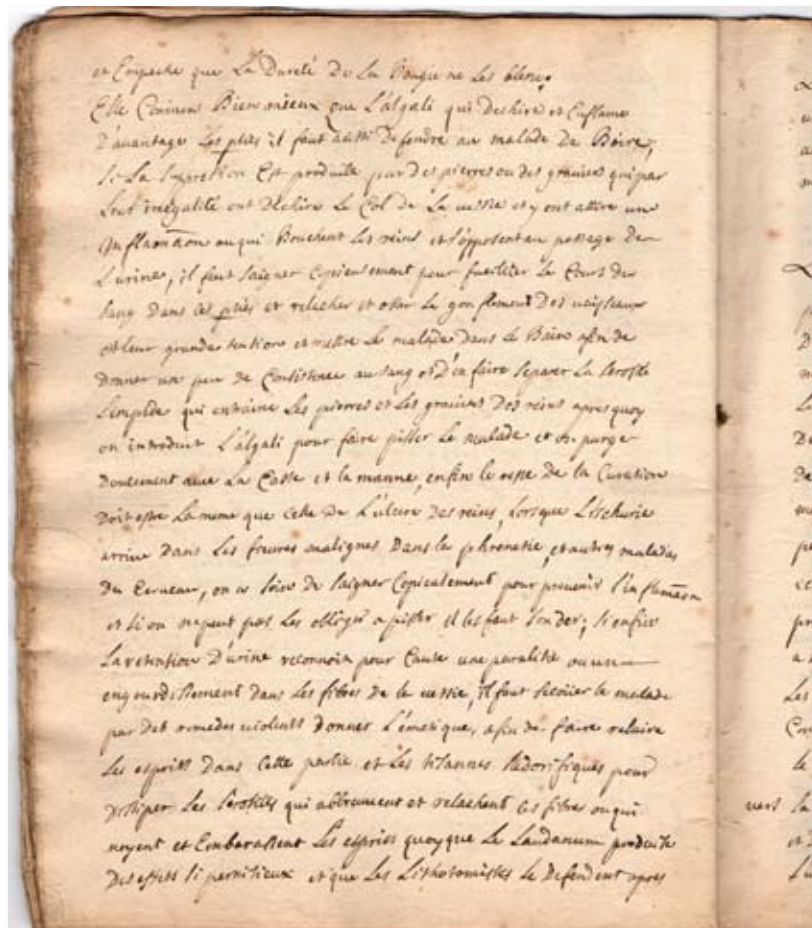 et Empeche que La Dureté De La bougie ne les blesse,
Elle Convien Bien mieux que L'algali qui Dechire et Enflame
D'avantage Les pties il faut aussi Defendre au malade de Boire,
Si La Supression Est produite par Des pierres ou des graviers qui par
Leur inegalité ont Dechiré Le Col de La vessie et y ont attiré une
Inflamãon ou qui Bouchent Les reins et s'opposent au passage De
L'urine, il faut saigner Copieusement pour faciliter le Cours du
sang Dans ces pties et relacher et oster Le gonflement Des vaisseaux
et leur grande tention et mettre Le malade Dans le Bain afin de
donner un peu de Consistence au sang et D'en faire separer La serosité
Limpide qui entraine Les pierres et Les graviers Des reins apres quoy
on introduit L'algali pour faire pisser le malade et on purge
Doucement avec La Casse et la manne, enfin le reste de la Curation
Doit estre La meme que Celle De L'ulcere Des reins, Lorsque L'ischurie
arrive Dans Les fievres malignes Dans la phrenesie, et autres maladies
Du Cerveau, on a soin de saigner Copieusement pour prevenir l'inflamãon
et si on ne peut pas Les obliger a pisser il les faut sonder; si enfin
La retention D'urine reconnoit pour Cause une paralisie ou un
engourdissement Dans Les fibres de la vessie, il faut secoüer le malade
par Des remedes violents Donner L'emetique, afin de faire reluire
Les esprits Dans Cette partie et Les tisannes sudorifiques pour
Dissiper Les serosités qui abbreuvent et relachent les fibres ou qui
noyent et Embarassent Les esprits quoyque Le Laudanum produise
Des effets si pernitieux et que Les Lithotomistes Le Defendent apres
vers